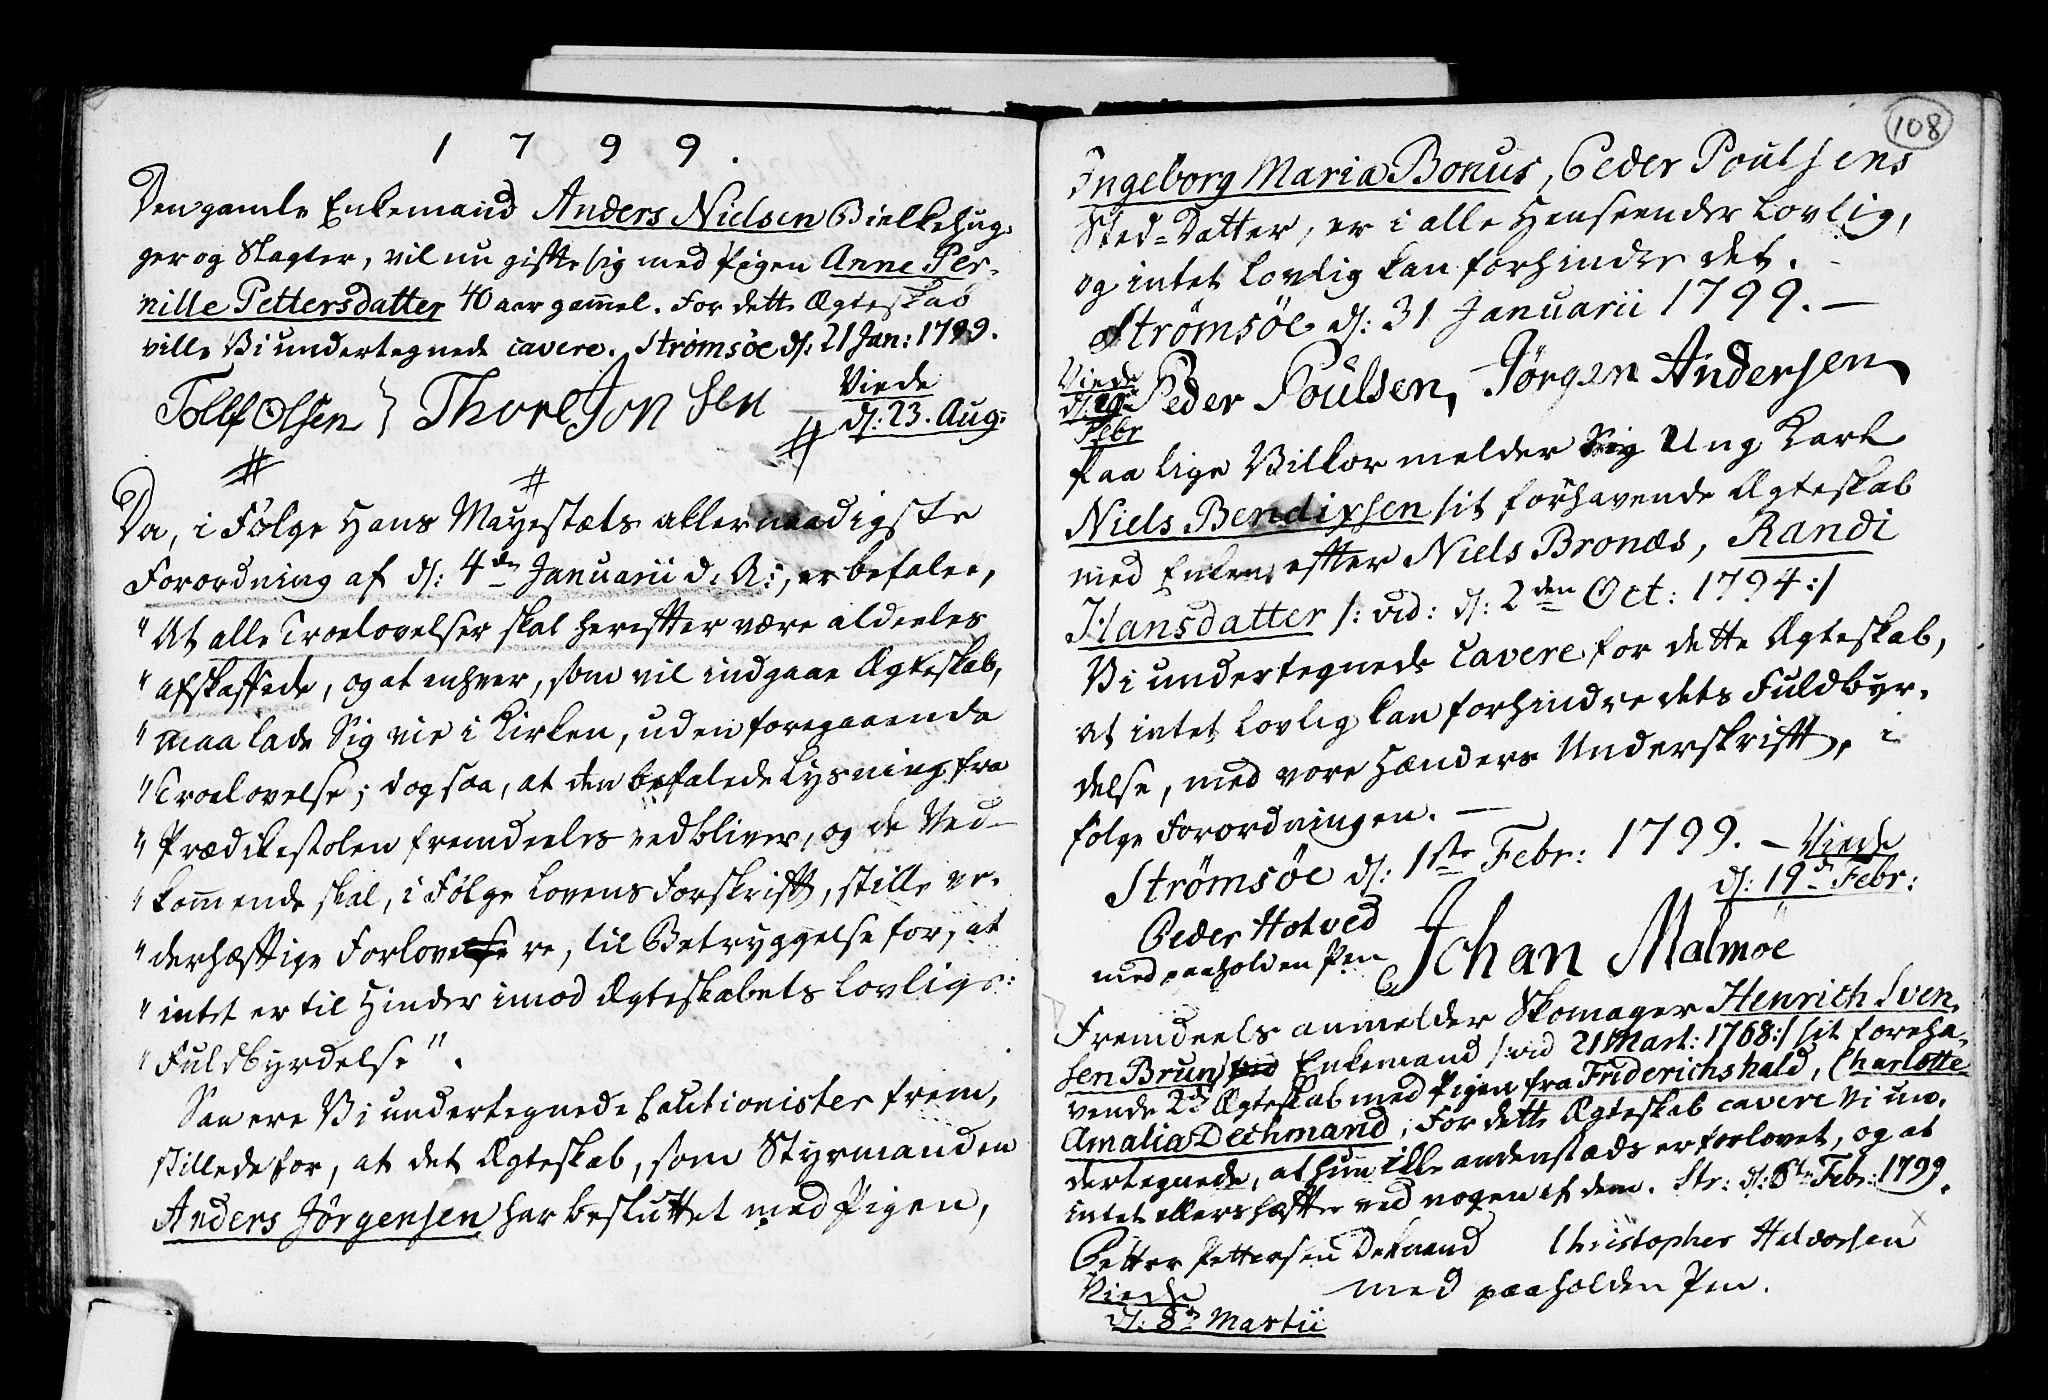 1 7 9 9 .
Den gamle Enkemand Anders Nielsen Bielkehug-
ger og Slagter, vil nu gifte sig med Pigen Anne Per-
nille Pettersdatter 40 aar gam̄el. For dette Ægteskab
ville Vi undertegnede cavere. Strømsøe d: 21 Jan: 1799.
Tollf Olsen } Thorel Jon Sen
Viede
d: 23. Aug:
Da, i Følge Hans Mayestæts allernaadigste
Forordning af d: 4de Januarii d. A:, er befalet,
" At alle Troelovelser skal herefter være aldeeles
" afskaffede, og at enhver, som vil indgaae Ægteskab,
" maa lade Sig vie i Kirken, uden foregaaende
" Troelovelse; dog saa, at den befalede Lysning fra
" Prædikestolen fremdeeles vedbliver, og de Ved-
" kom̄ende skal, i Følge Lovens Forskrift, stille ve-
" derhæftige Forlovere, til Betryggelse for, at
" intet er til Hinder imod Ægteskabets Lovlige
" Fuldbyrdelse".
Saa ere Vi undertegnede Cautionister frem,
stillede for, at det Ægteskab, som Styrmanden
Anders Jørgensen har besluttet med Pigen,
108
Ingeborg Maria Bonus, Peder Poulsens
Sted-Datter, er i alle Henseender Lovlig,
og intet Lovlig kan forhindre det.
Strømsøe d: 31 Januarii 1799. —
Viede
d:
Febr
Peder Poulsen, Jørgen Andersen
Paa lige Vilkor melder Sig Ung Karl
Niels Bendixsen sit forhavende Ægteskab
med Enken efter Niels Bronæs, Randi
Hansdatter /: vid: d: 2den Oct: 1794:/
Vi undertegnede cavere for dette Ægteskab,
at intet Lovlig kan forhindre dets Fuldbyr-
delse, med vore Hænders Underskrift, i
følge Forordningen. —
Strømsøe d: 1ste Febr: 1799. — Viede
d: 19de Febr:
Peder Hotved
med paaholden Pen
Johan Malmoe
Fremdeels anmelder Skomager Henrich Sven-
sen Brun, Enkemand /: vid 21 Mart: 1768:/ sit foreha-
vende 2d Ægteskab med Pigen fra Friderichshald, Charlotte
Amalia Dechmand; For dette Ægteskab cavere Vi un-
dertegnede, at hun ikke andenstæds er forlovet, og at
intet ellers hæfter ved nogen af dem. Str: d: 8te Febr: 1799.
Petter Pettersen Dekmand Christopher Halvorsen
med paaholden Pen.
Viede
d: 8de Martii